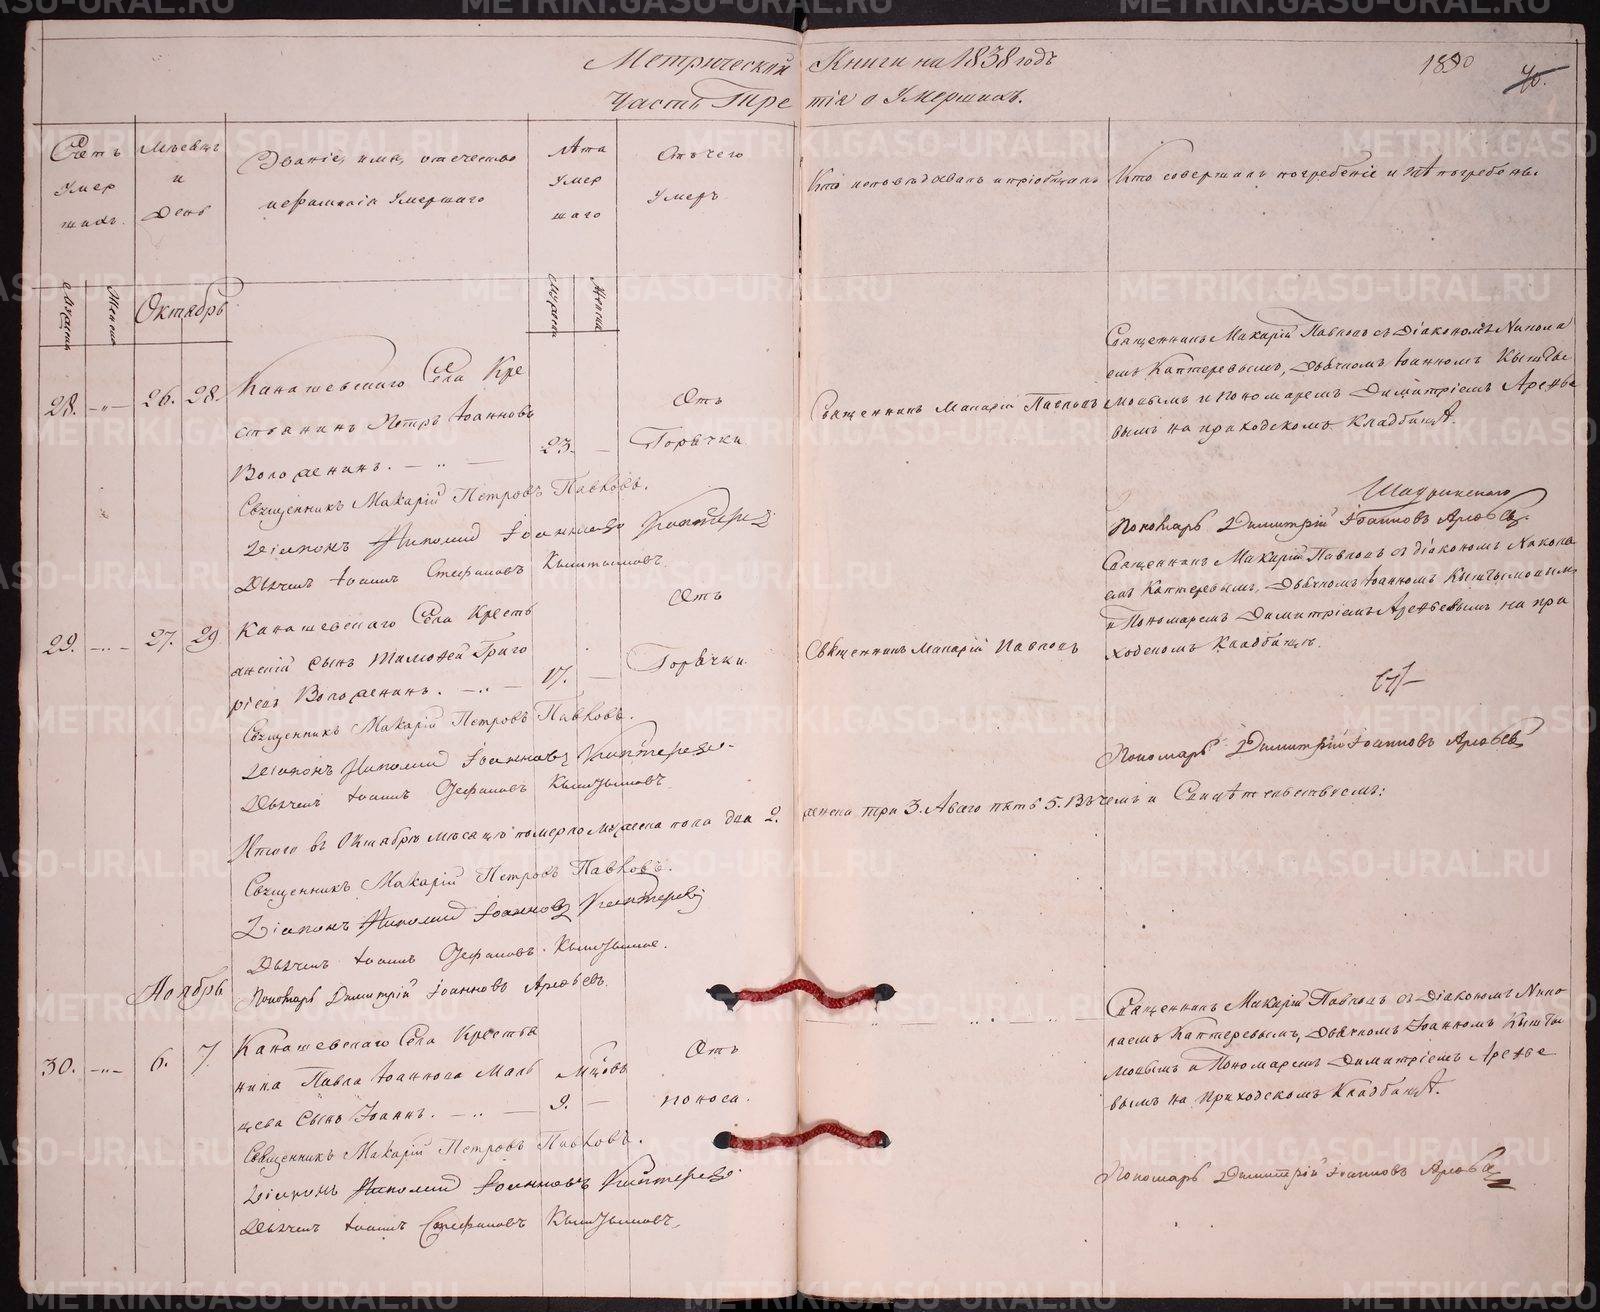 Метрической Книги на 1838 годъ
Часть Третія о Умершихъ.
1890
40.
Счетъ Умершихъ.
Мѣсяцъ и День
Званіе, имя, отечество и фамилія Умершаго
Лѣта Умершаго
Отъ чего Умеръ
Кто исповѣдовалъ и пріобщалъ
Кто совершалъ погребеніе и гдѣ погребенъ.
Мужеска
Женска
Октябрь
Мужеска
Женска
28. -"- 26. 28.
Канашевскаго Села Кре
стьянинъ Петръ Іоанновъ
Вологженинъ. - " -
23. -
Отъ
Горячки.
Священникъ Макарій Павловъ
Священникъ Макарій Павловъ съ Діакономъ Никола
емъ Каптеревымъ, Дьячкомъ Іоанномъ Кышты
мовымъ и Пономаремъ Димитріемъ Арефье
вымъ на приходскомъ Кладбищѣ.
Священникъ Макарій Петровъ Павловъ.
Діаконъ Николай Іоанновъ Каптеревъ
Дьячекъ Іоаннъ Стефановъ Кыштымовъ.
Шадринскаго
Пономарь Димитрій Іоанновъ Арефьевъ.
29. -"- 27. 29
Канашевскаго Села Кресть
янскій сынъ Тимофей Григо
рьевъ Вологженинъ. - " -
17. -
Отъ
Горячки.
Священникъ Макарій Павловъ
Священникъ Макарій Павловъ съ діакономъ Никола
емъ Каптеревымъ, Дьячкомъ Іоанномъ Кыштымовымъ
и Пономаремъ Димитріемъ Арефьевымъ на при
ходскомъ Кладбищѣ.
Священникъ Макарій Петровъ Павловъ.
Діаконъ Николай Іоанновъ Каптеревъ.
Дьячекъ Іоаннъ Стефановъ Кыштымовъ
Пономарь Димитрій Іоанновъ Арефьевъ
Итого въ Октябрѣ мѣсяцѣ померло мужеска пола два 2. женска три 3. А всего пять 5. Въ чемъ и Свидѣтельствуемъ:
Священникъ Макарій Петровъ Павловъ.
Діаконъ Николай Іоанновъ Каптеревъ
Дьячекъ Іоаннъ Стефановъ Кыштымов.
Пономарь Димитрій Іоанновъ Арефьевъ.
Ноябрь
30. -"- 6. 7.
Канашевскаго Села Крестья
нина Павла Іоаннова Маль
цева Сынъ Іоаннъ. - " -
Мѣсяцовъ
9. -
Отъ
поноса.
Священникъ Макарій Павловъ съ Діакономъ Нико
лаемъ Каптеревымъ, Дьячкомъ Іоанномъ Кышты
мовымъ и Пономаремъ Димитріемъ Арефье
вымъ на Приходскомъ Кладбищѣ.
Священникъ Макарій Петровъ Павловъ.
Діаконъ Николай Іоанновъ Каптеревъ
Дьячекъ Іоаннъ Стефановъ Кыштымовъ.
Пономарь Димитрій Іоанновъ Арефьевъ
METRIKI.GASO-URAL.RU